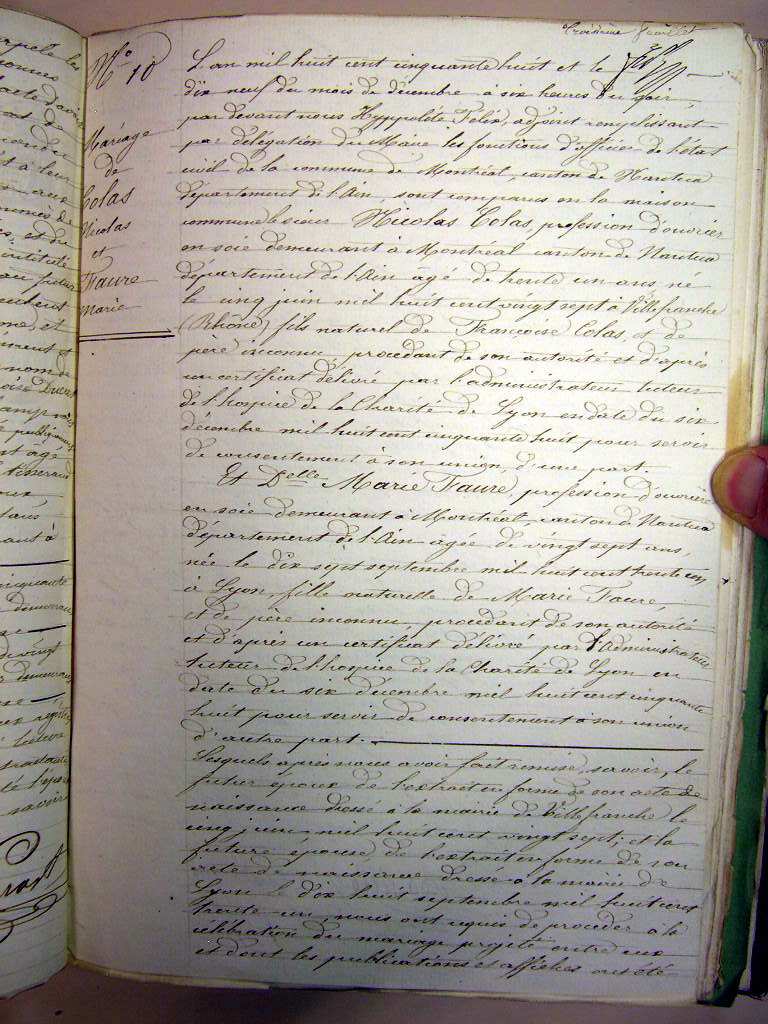 troisième feuillet
N° 10
Mariage
de
Colas
Nicolas
et
Faure
Marie
L'an mil huit cent cinquante huit et le
dix neuf du mois de décembre à six heures du soir,
par devant nous Hyppolite Felix, adjoint remplissant
par délégation du Maire les fonctions d'officier de l'état
civil de la commune de Montréal, canton de Nantua
département de l'Ain, sont comparus en la maison
commune le sieur Nicolas Colas, profession d'ouvrier
en soie demeurant à Montréal canton de Nantua
département de l'Ain âgé de trente un ans, né
le cinq juin mil huit cent vingt sept à Villefranche
(Rhône) fils naturel de Françoise Colas, et de
père inconnu, procédant de son autorité et d'après
un certificat délivré par l'administrateur tuteur
de l'hospice de la Charité de Lyon en date du six
décembre mil huit cent cinquante huit pour servir
de consentement à son union, d'une part.
Et Delle Marie Faure, profession d'ouvrière
en soie demeurant à Montréal, canton de Nantua
département de l'Ain âgée de vingt sept ans,
née le dix sept septembre mil huit cent trente un
à Lyon, fille naturelle de Marie Faure,
et de père inconnu, procédant de son autorité
et d'après un certificat délivré par l'Administrateur
tuteur de l'hospice de la Charité de Lyon en
date du six décembre mil huit cent cinquante
huit pour servir de consentement à son union
d'autre part.
Lesquels après nous avoir fait remise, savoir, le
futur époux de l'extrait en forme de son acte de
naissance dressé à la mairie de Villefranche le
cinq juin mil huit cent vingt sept, et la
future épouse, de l'extrait en forme de son
acte de naissance dressé à la mairie de
Lyon le dix huit septembre mil huit cent
trente un, nous ont requis de procéder à la
célébration du mariage projeté entre eux
et dont les publications et affiches ont été